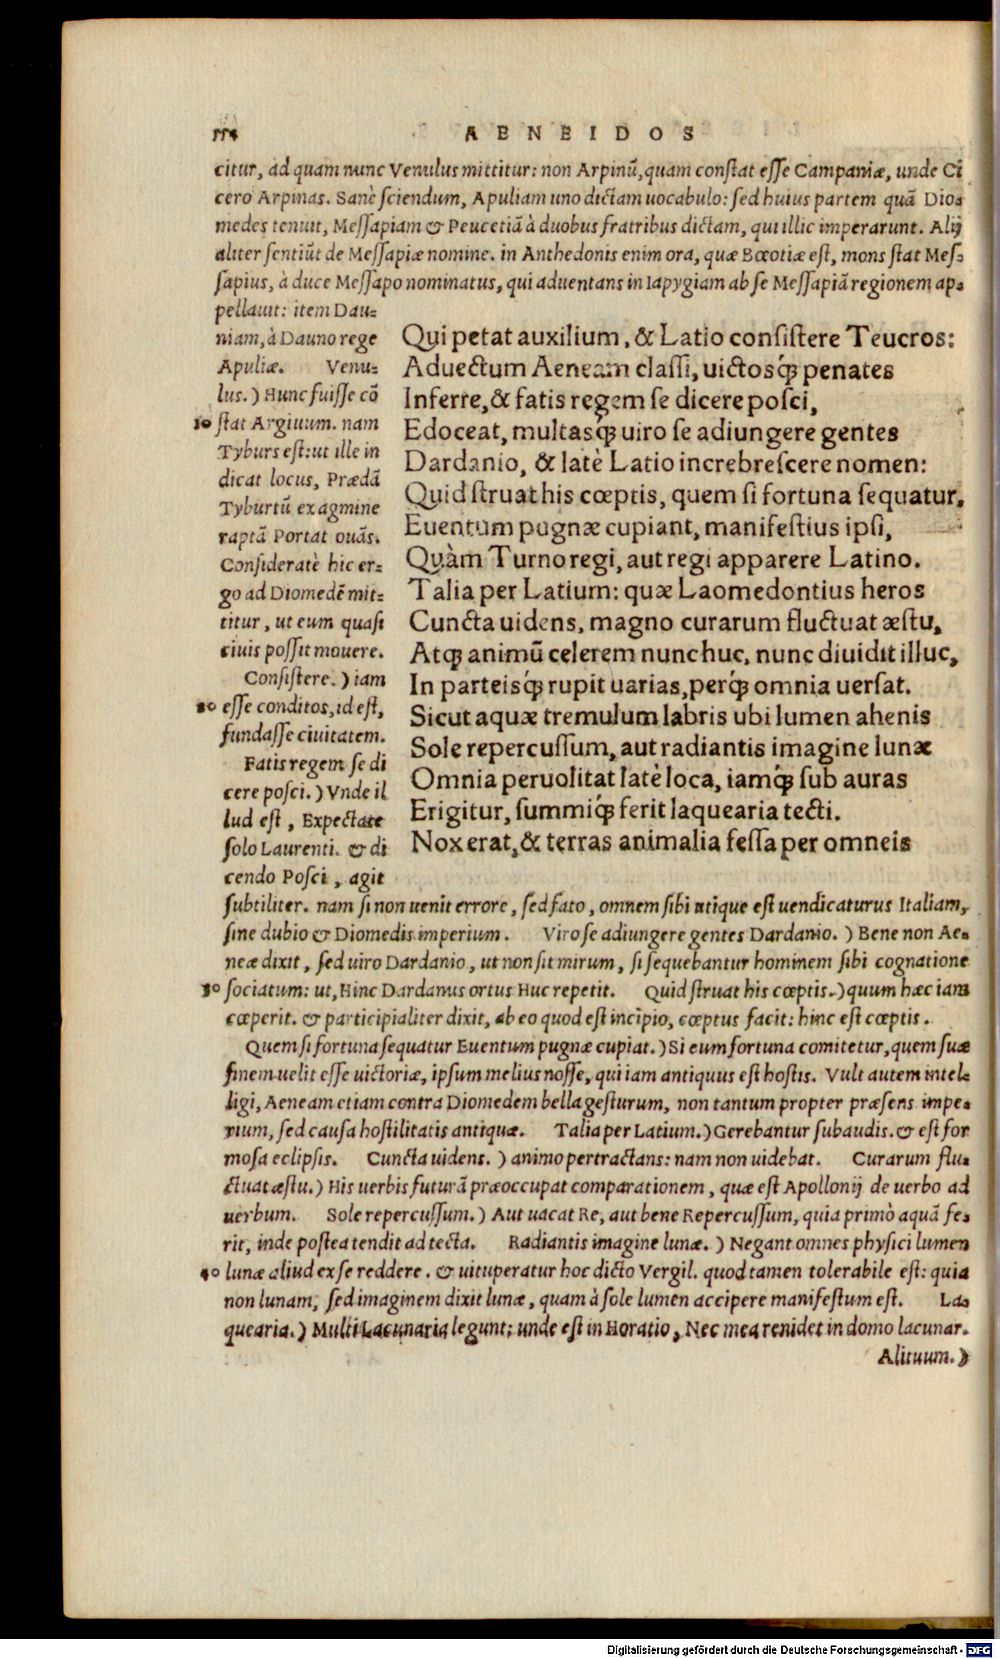 554
AENEIDOS
citur, ad quam nunc Venulus mittitur: non Arpinũ, quam constat esse Campaniæ, unde Ci
cero Arpinas. Sanè sciendum, Apuliam uno dictam uocabulo: sed huius partem quã Dio-
medes tenuit, Messapiam & Peucetiã à duobus fratribus dictam, qui illic imperarunt. Alij
aliter sentiũt de Messapiæ nomine. in Anthedonis enim ora, quæ Bœotiæ est, mons stat Mes-
sapius, à duce Messapo nominatus, qui aduentans in Iapygiam ab se Messapiã regionem ap-
pellauit: item Dau-
niam, à Dauno rege
Apuliæ. Venu-
lus.) Hunc fuisse cõ
10 stat Argiuum. nam
Tyburs est: ut ille in
dicat locus, Prædã
Tyburtũ ex agmine
raptã Portat ouãs.
Consideratè hic er-
go ad Diomedẽ mit-
titur, ut eum quasi
ciuis possit mouere.
Consistere.) iam
20 esse conditos, id est,
fundasse ciuitatem.
Fatis regem se di
cere posci.) Vnde il
lud est, Expectate
solo Laurenti. & di
cendo Posci, agit
Qui petat auxilium, & Latio consistere Teucros:
Aduectum Aeneam classi, uictosq́; penates
Inferre, & fatis regem se dicere posci,
Edoceat, multasq́; uiro se adiungere gentes
Dardanio, & latè Latio increbrescere nomen:
Quid struat his cœptis, quem si fortuna sequatur,
Euentum pugnæ cupiant, manifestius ipsi,
Quàm Turno regi, aut regi apparere Latino.
Talia per Latium: quæ Laomedontius heros
Cuncta uidens, magno curarum fluctuat æstu,
Atq; animũ celerem nunc huc, nunc diuidit illuc,
In parteisq́; rupit uarias, perq́; omnia uersat.
Sicut aquæ tremulum labris ubi lumen ahenis
Sole repercussum, aut radiantis imagine lunæ
Omnia peruolitat latè loca, iamq́; sub auras
Erigitur, summiq́; ferit laquearia tecti.
Nox erat, & terras animalia fessa per omneis
subtiliter. nam si non uenit errore, sed fato, omnem sibi utique est uendicaturus Italiam,
sine dubio & Diomedis imperium. Viro se adiungere gentes Dardanio.) Bene non Ae-
neæ dixit, sed uiro Dardanio, ut non sit mirum, si sequebantur hominem sibi cognatione
30 sociatum: ut, Hinc Dardanus ortus Huc repetit. Quid struat his cœptis.) quum hæc iam
cœperit. & participialiter dixit, ab eo quod est incipio, cœptus facit: hinc est cœptis.
Quem si fortuna sequatur Euentum pugnæ cupiat.) Si eum fortuna comitetur, quem suæ
finem uelit esse uictoriæ, ipsum melius nosse, qui iam antiquus est hostis. Vult autem intel-
ligi, Aeneam etiam contra Diomedem bella gesturum, non tantum propter præsens impe-
rium, sed causa hostilitatis antiquæ. Talia per Latium.) Gerebantur subaudis. & est for
mosa eclipsis. Cuncta uidens.) animo pertractans: nam non uidebat. Curarum flu-
ctuat æstu.) His uerbis futurã præoccupat comparationem, quæ est Apollonij de uerbo ad
uerbum. Sole repercussum.) Aut uacat Re, aut bene Repercussum, quia primò aquã fe-
rit, inde postea tendit ad tecta. Radiantis imagine lunæ.) Negant omnes physici lumen
40 lunæ aliud ex se reddere. & uituperatur hoc dicto Vergil. quod tamen tolerabile est: quia
non lunam, sed imaginem dixit lunæ, quam à sole lumen accipere manifestum est. La-
quearia.) Multi Lacunaria legunt: unde est in Horatio, Nec mea renidet in domo lacunar.
Alituum.)
Digitalisierung gefördert durch die Deutsche Forschungsgemeinschaft - DFG